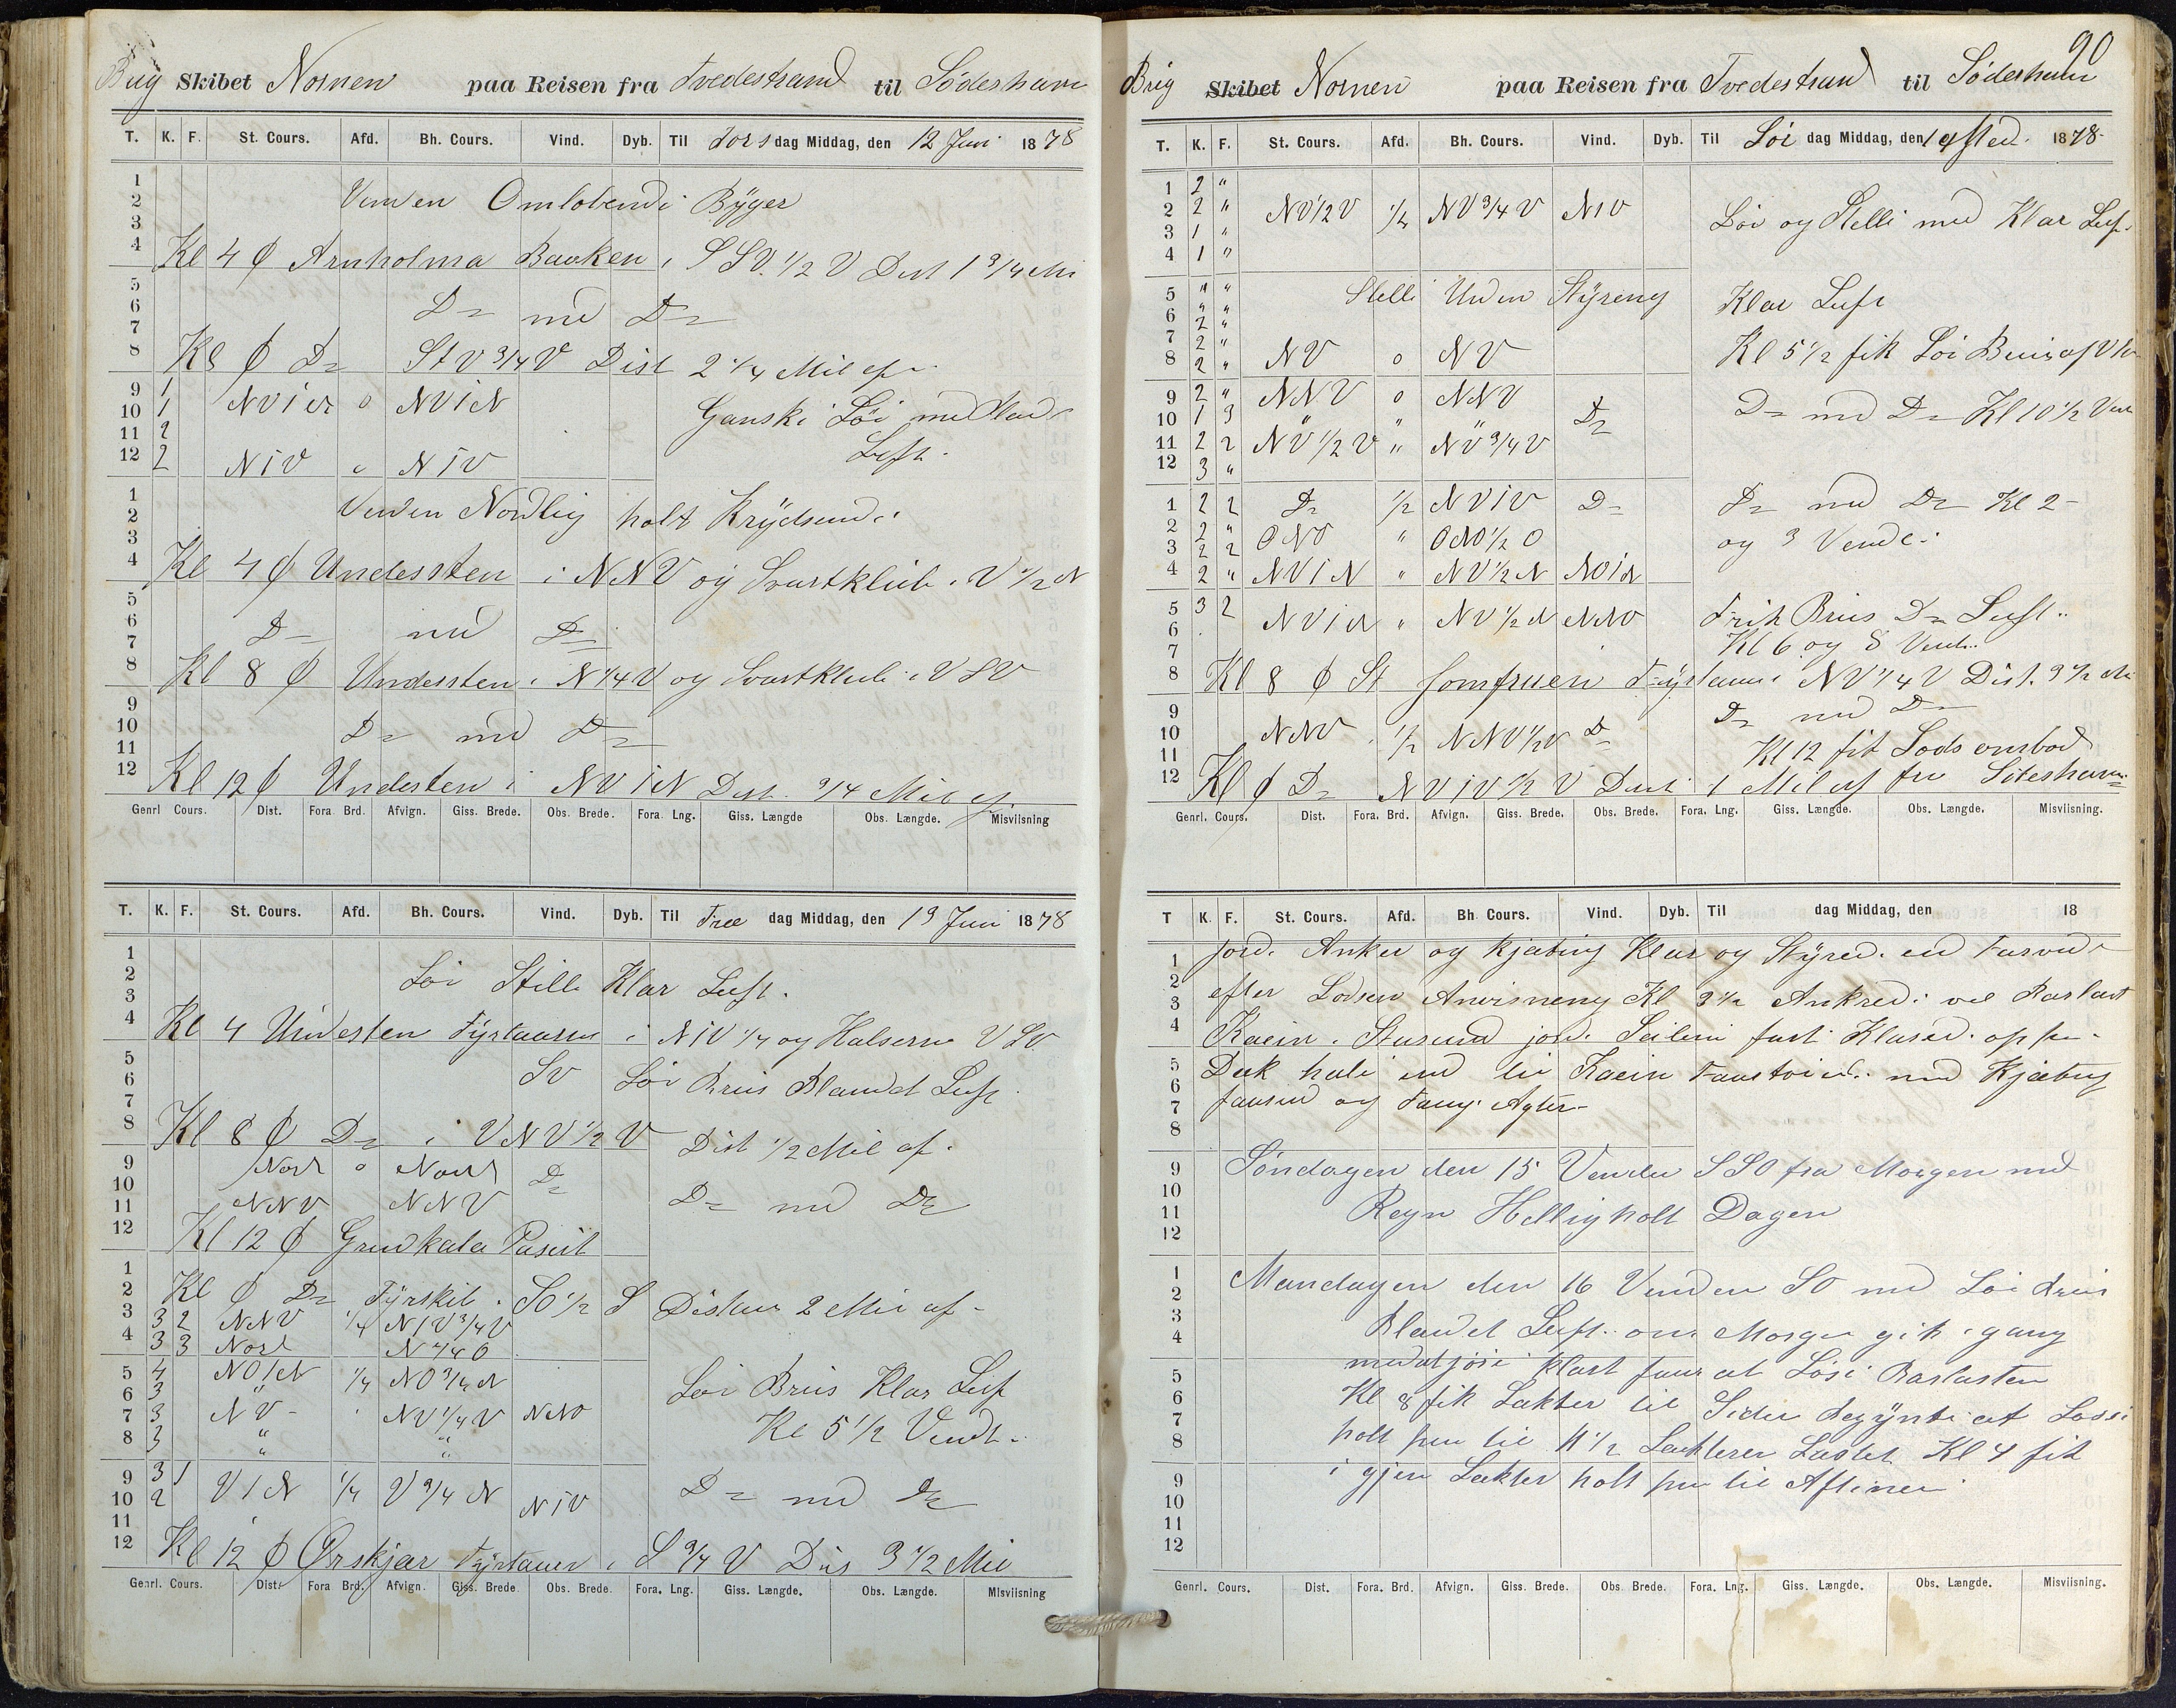 Brig Skibet Nornen paa Reisen fra Tvedestrand til Söderhavn
T. K. F. St. Cours. Afd. Bh. Cours. Vind. Dyb. Til Torsdag Middag, den 12 Juni 1878
1
2 Vinden Omlöbendi Byger
3
4 Kl 4 ϕ Arnholma Baaken i SSV. 1/2 V Dist 1 3/4 Mi
5
6 Do med Do
7
8 Kl 8 ϕ Do StV 3/4 V Dist 2 1/4 Mil af
9 1 NViN o NViN Ganski Löi med Klar
10 1
11 2 Luft.
12 2 NiV o NiV
1
2 Vinden Nordlig holt Krydsendi
3
4 Kl 4 ϕ Understen i NNV og Svartklub i V 1/2 N
5
6 Do med Do
7
8 Kl 8 ϕ Understen i N 1/4 V og Svartklub i VSV
9
10 Do med Do
11
12 Kl 12 ϕ Understen i NViN Dist. 3/4 Mil af
Genrl Cours. Dist. Fora. Brd. Afvign. Giss. Brede. Obs. Brede. Fora. Lng. Giss. Længde Obs. Længde. Misviisning
T. K. F. St. Cours. Afd. Bh. Cours. Vind. Dyb. Til Free dag Middag, den 13 Juni 1878
1
2 Löi Stille Klar Luft.
3
4 Kl 4 Understen Fyrtaarn i NiV 1/4 og Halserne VSV.
5
6 SV Löi Briis Blandet Luft
7
8 Kl 8 ϕ Do i VNV 1/2 V Dist 1/2 Mil af.
9 Nord o Nord Do
10
11 NNV NNV Do med Do
12 Kl 12 ϕ Grundkala Paserit
1
2 Kl ϕ Do Fyrskib. SO 1/2 S Distan 2 Mil af
3 3 2 NNV 1/4 NiV 3/4 V
4 3 3 Nord N 1/4 O
5 4 NOiN 1/4 NO 3/4 N Löi Briis Klar Luf
6 3 "
7 3 NV NV 1/4 V NNO Kl 5 1/2 Vendt.
8 3 " "
9 3 1 ViN 1/4 V 3/4 N NiV Do med Do
10 2
11
12 Kl 12 ϕ Örskjar Fyrtauer i S 3/4 V Dis 3 1/2 Mil
Genrl. Cours. Dist. Fora Brd. Afvign. Giss. Brede Obs. Brede. Fora. Lng. Giss. Længde. Obs. Længde. Misviisning
90
Brig Skibet Nornen paa Reisen fra Tvedestrand til Söderhavn
T. K. F. St. Cours. Afd. Bh. Cours. Vind. Dyb. Til Löi dag Middag, den 14 1878
1 2 "
2 2 " NV 1/2 V 1/4 NV 3/4 V NiV Löi og Stelli med Klar Luf.
3 1 "
4 1 "
5 " " Stelli Uden Styreng Klar Luft
6 " "
7 2 " Kl 5 1/2 fik Löi Briis af
8 2 " NV o NV
9 2 " NNV o NNV
10 1 3 " " " Do Do med Do Kl 10 1/2 Ven
11 2 2 NV 1/2 V " NV 3/4 V
12 3 "
1 2 2 Do 1/2 NViV Do Do med Do Kl 2
2 2 " ONO " ONO 1/2 O og 3 Vende.
3 2 2
4 2 " NViN " NV 1/2 N NOiN
5 3 2 NViN " NV 1/2 N NNO Frisk Briis Do Luft
6
7 Kl 6 og 8 Vendt
8 Kl 8 ϕ St Jomfruen Fyrtaarn i NV 1/4 V Dist. 3 1/2 Mi
9 Do med Do
10 NNV 1/2 NNV 1/2 V Do
11 Kl 12 fik Lods ombod
12 Kl ϕ Do NViV 1/2 V Dist 1 Mil af fra
Genrl. Cours. Dist. Fora. Brd. Afvign. Giss. Brede. Obs. Brede. Fora. Lng. Giss. Længde. Obs. Længde. Misviisning.
T K. F. St. Cours. Afd. Bh. Cours. Vind. Dyb. Til dag Middag, den 18
1 jord. Anker og Kjæting Klar og Styred. ind Farvand
2 efter Lodsen Anvisneng Kl 3 1/2 Ankred. ved Barlast
3
4 Kaein. jord. Seileni fast Klared. op paa
5 Dek hali ind til Kaein med Kjæting
6
7 og Agter
8
9 Söndagen den 15 Vinden SSO fra Morgen med
10
11 Regn Helligholt Dagen
12
1 Mandagen den 16 Vinden SO med Löi Briis
2
3 Blandet Luft om Morgen gik i gang
4
5 med at jöre klart faar at Lösi Barlasten
6 Kl 8 fik Lækter til Siden begynte at Lossi
7
8 holt paa til 11 1/2 Lækteren Lastet Kl 4 fik
9 i gjen Lækter holt paa til Aftinen
10
11
12
Genrl. Cours. Dist. Fora. Brd. Afvign. Giss. Brede. Obs. Brede. Fora. Lng. Giss. Længde. Obs. Længde. Misviisning.